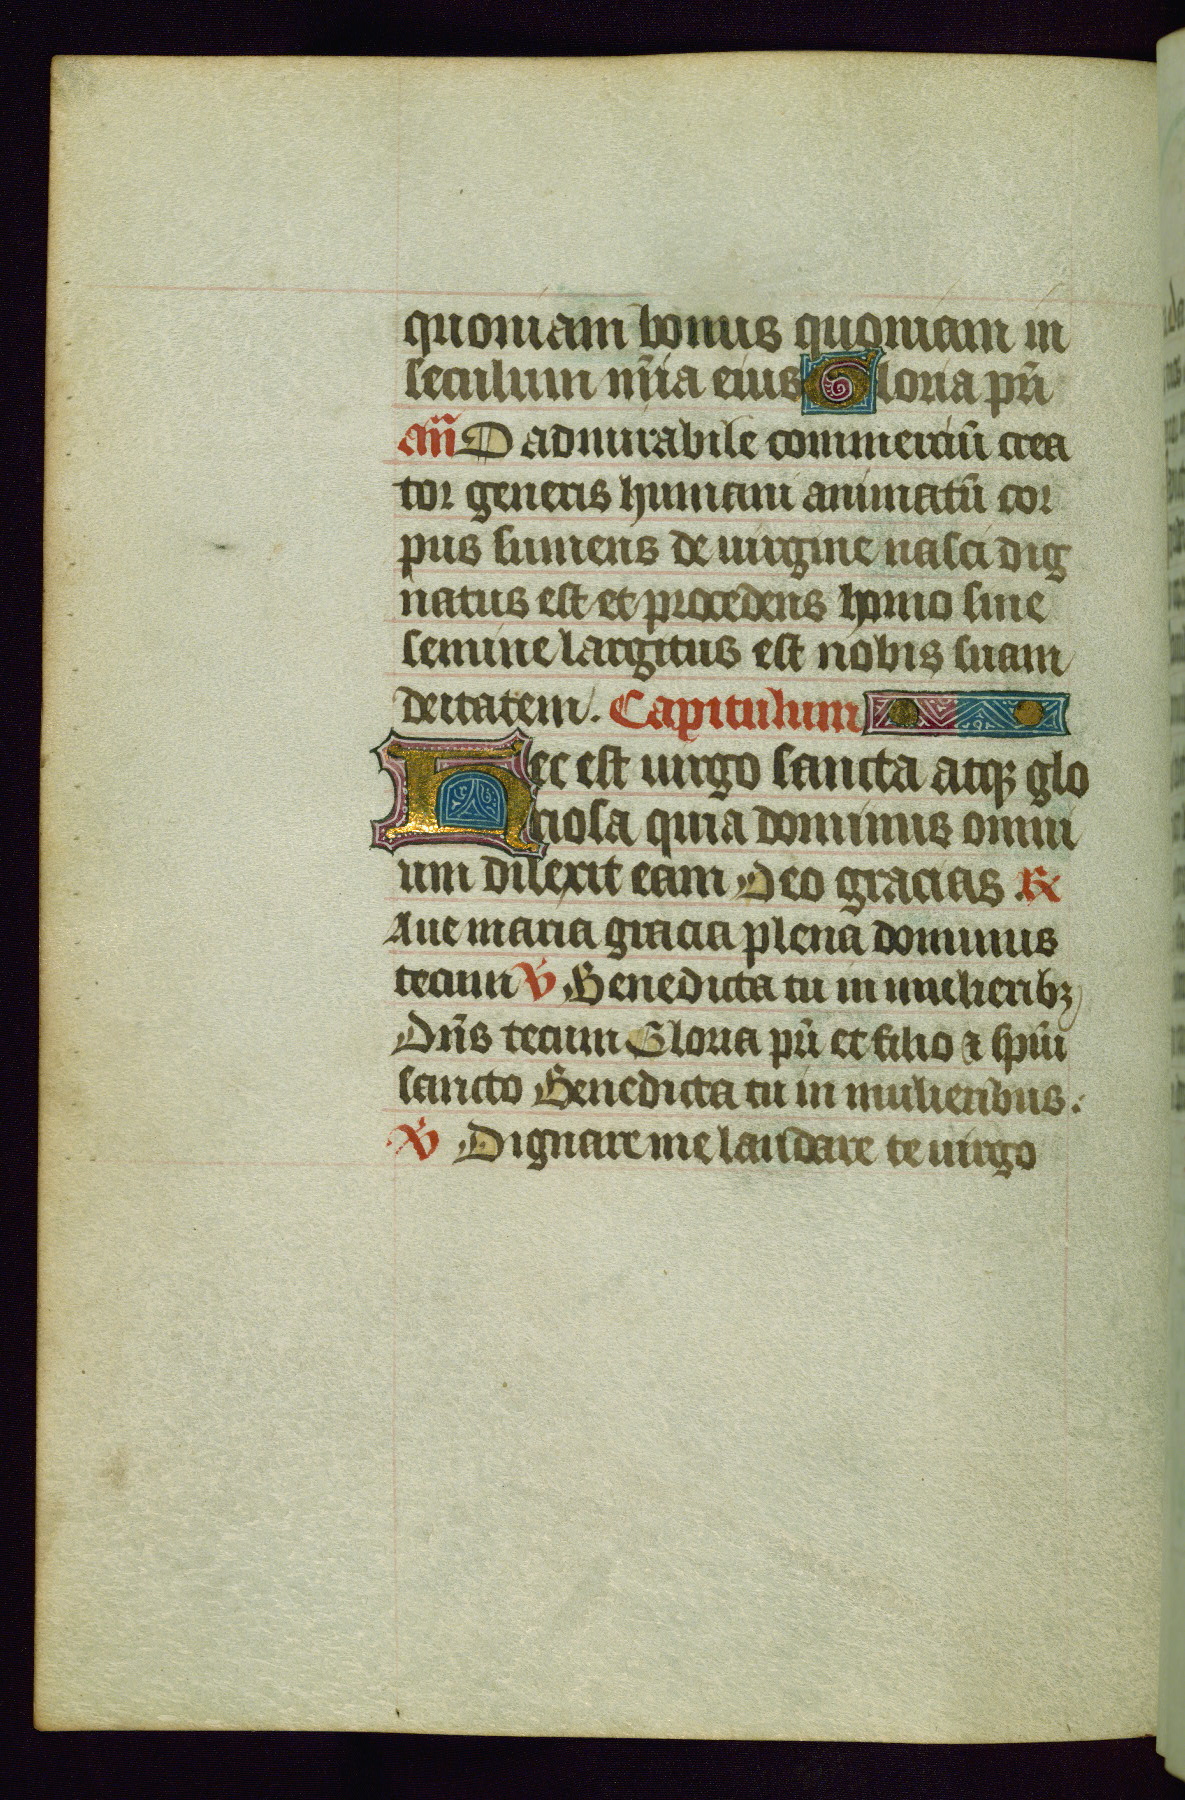 quoniam bonus quoniam in
seculum mīa eius Gloria pr̄i
an̄ O admirabile commerciū crea
tor generis humani animatū cor
pus sumens de uirgine nasci dig
natus est et procedens homo sine
semine largitus est nobis suam
deitatem. Capitulum
Hec est uirgo sancta atqꝫ glo
riosa quia dominus omni
um dilexit eam Deo gracias ℟
Aue maria gracia plena dominus
tecum ℣ Benedicta tu in mulieribꝫ
Dn̄s tecum Gloria pr̄i et filio ⁊ sp̄ui
sancto Benedicta tu in mulieribus.
℣ Dignare me laudare te uirgo